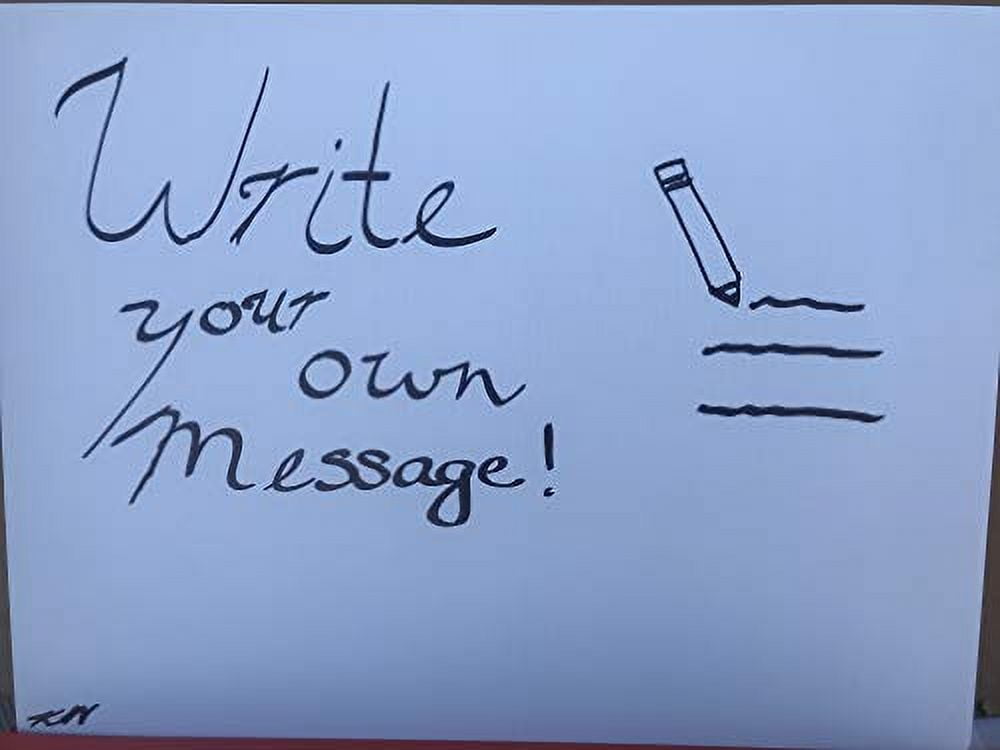 Write
your
own
Message!
KN